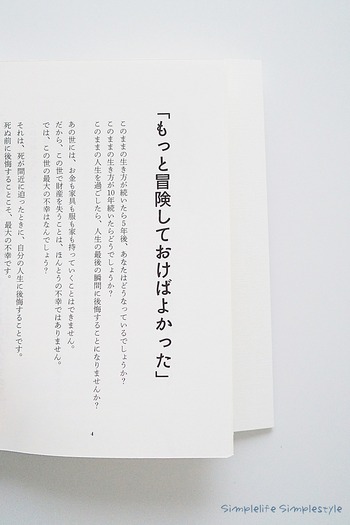 「もっと冒険しておけばよかった」
このままの生き方が続いたら5年後、あなたはどうなっているでしょうか？
このままの生き方が10年続いたらどうでしょうか？
このままの人生を過ごしたら、人生の最後の瞬間に後悔することになりませんか？
あの世には、お金も家具も服も家も持っていくことはできません。
だから、この世で財産を失うことは、ほんとうの不幸ではありません。
では、この世の最大の不幸はなんでしょう？
それは、死が間近に迫ったときに、自分の人生に後悔することです。
死ぬ前に後悔することこそ、最大の不幸です。
4
Simplelife Simplestyle